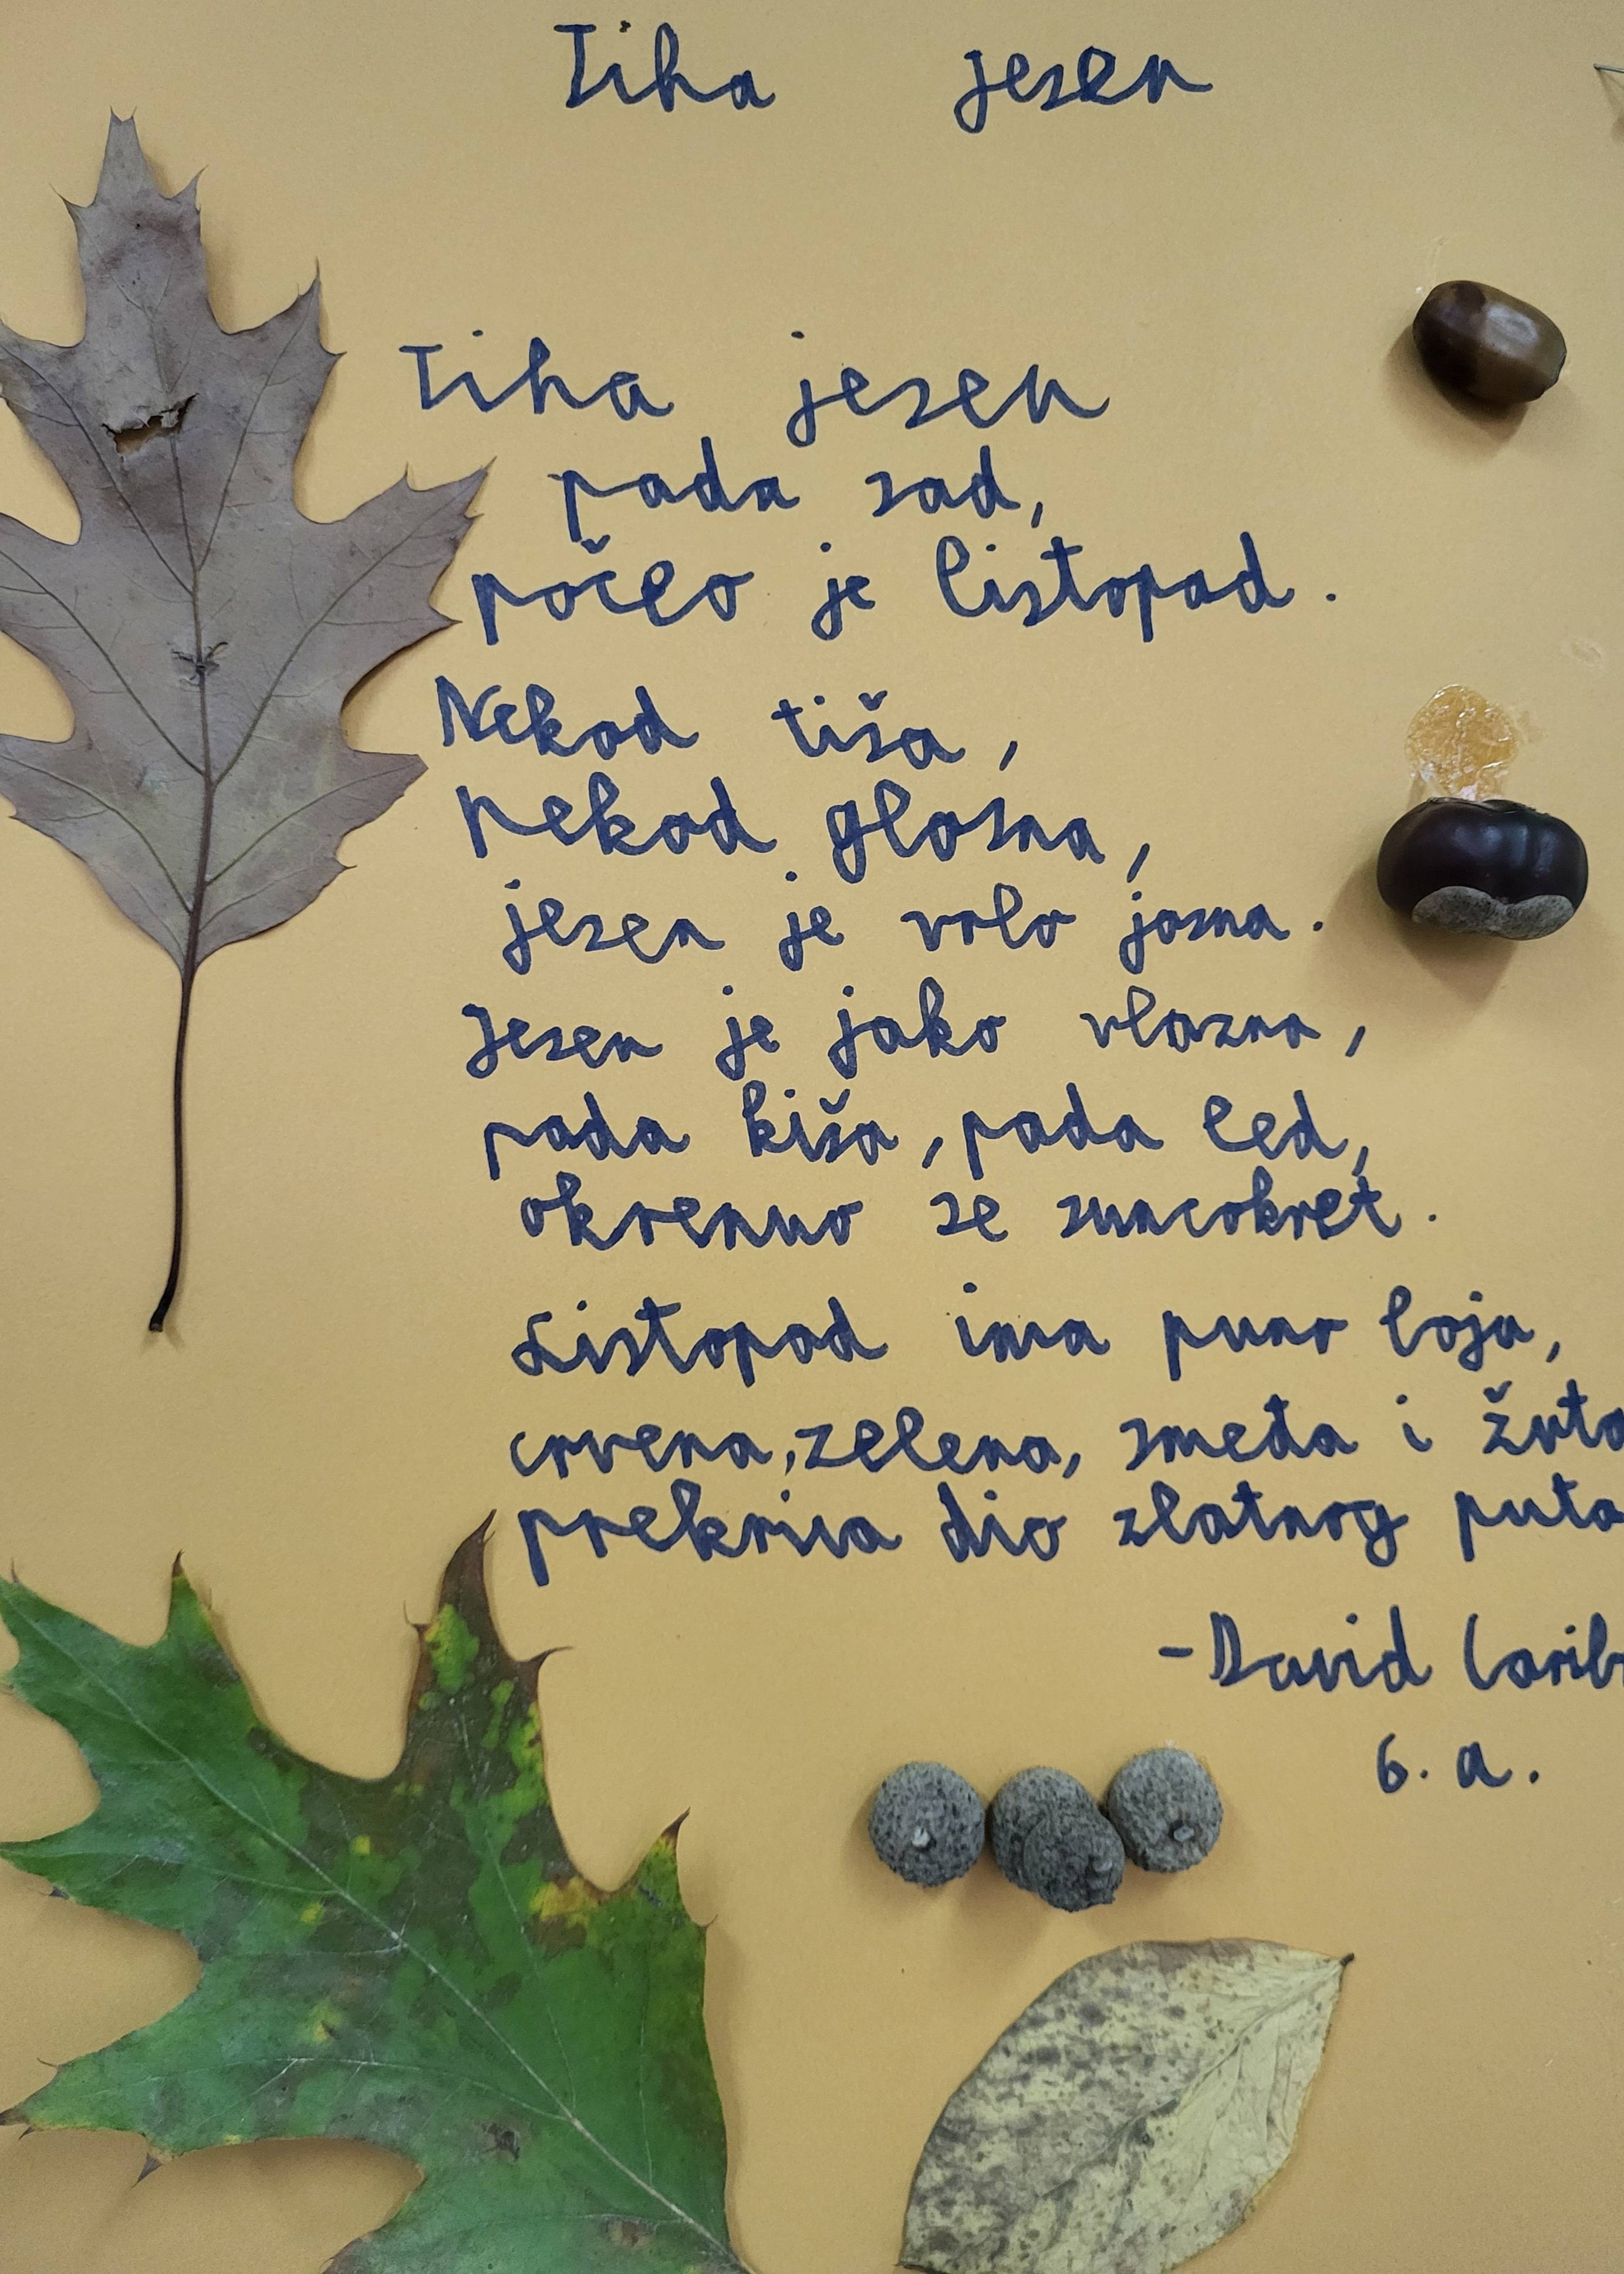 Tiha jesen
Tiha jesen
pada sad,
počeo je listopad.
Nekad tiša,
nekad glasna,
jesen je vrlo jasna.
Jesen je jako vlazna,
pada kiša, pada led,
okrenuo se suncokret.
Listopad ima puno boja,
crvena, zelena, smeđa i žuta
prekriva dio zlatnog puta
- David
6. a.